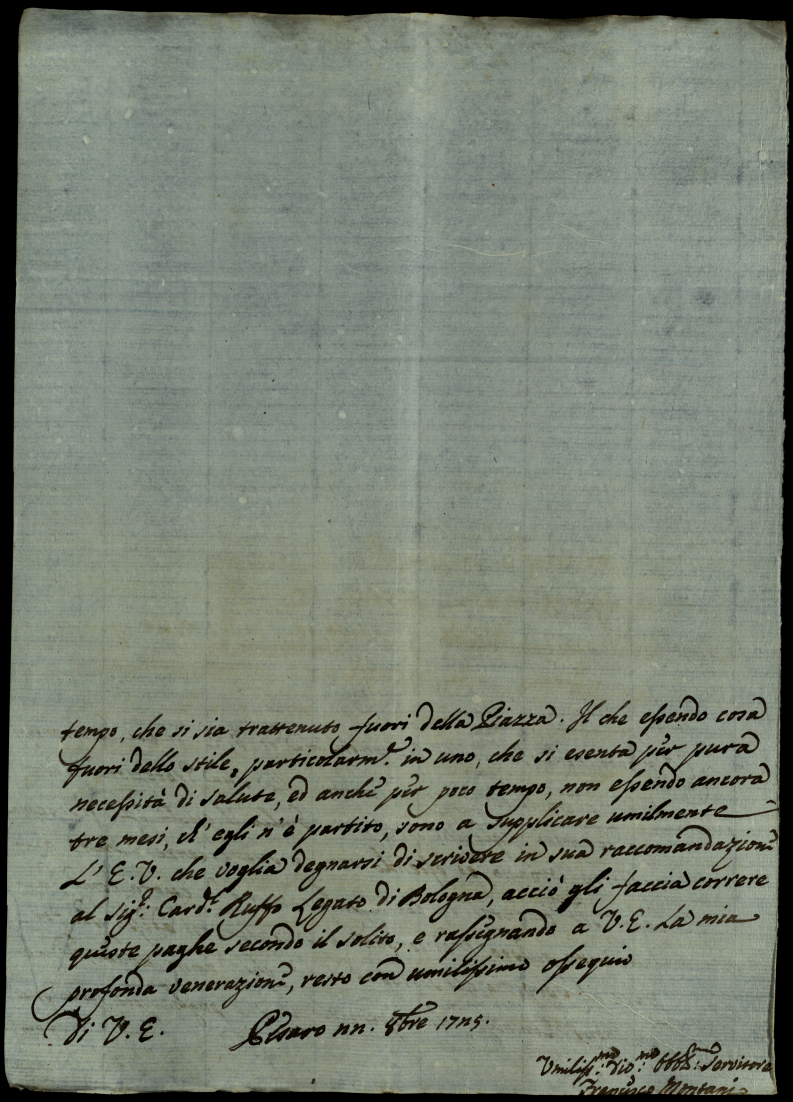 tempo, che si sia trattenuto fuori della Piazza. Il che essendo cosa
fuori dello stile, particolarm.e in uno, che si esenta per pura
necessità di salute, ed anche per poco tempo, non essendo ancora
tre mesi, ch'egli n'è partito, sono a supplicare umilmente
L'E.V. che voglia degnarsi di scrivere in sua raccomandazione
al Sig.r Card.l Ruffo Legato di Bologna, acciò gli faccia correre
queste paghe secondo il solito, e rassegnando a V.E. la mia
profonda venerazione, resto con umilissimo ossequio
Di V.E. Pesaro 22. 8bre 1725.
Umiliss.mo Servitore
Francesco Montani